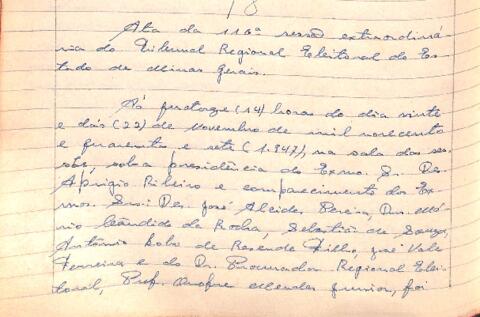 Ata da 116ª sessão extraordiná-
ria do Tribunal Regional Eleitoral do Es-
tado de Minas Gerais.
Ás quatorze (14) horas do dia vinte
e dois (22) de novembro de mil novecentos
e quarenta e sete (1.947), na sala das ses-
sões, sob a presidência do Exmo. Sr. Des.
Aprigio Ribeiro e comparecimento dos Ex-
mos. Srs: Des. José Alcides Pereira, Drs. Má-
rio Cândido da Rocha, Sebastião de Souza,
Antônio Lobo de Resende Filho, José Valle
Ferreira e do Dr. Procurador Regional Elei-
toral, Prof. Onofre Mendes Junior, foi